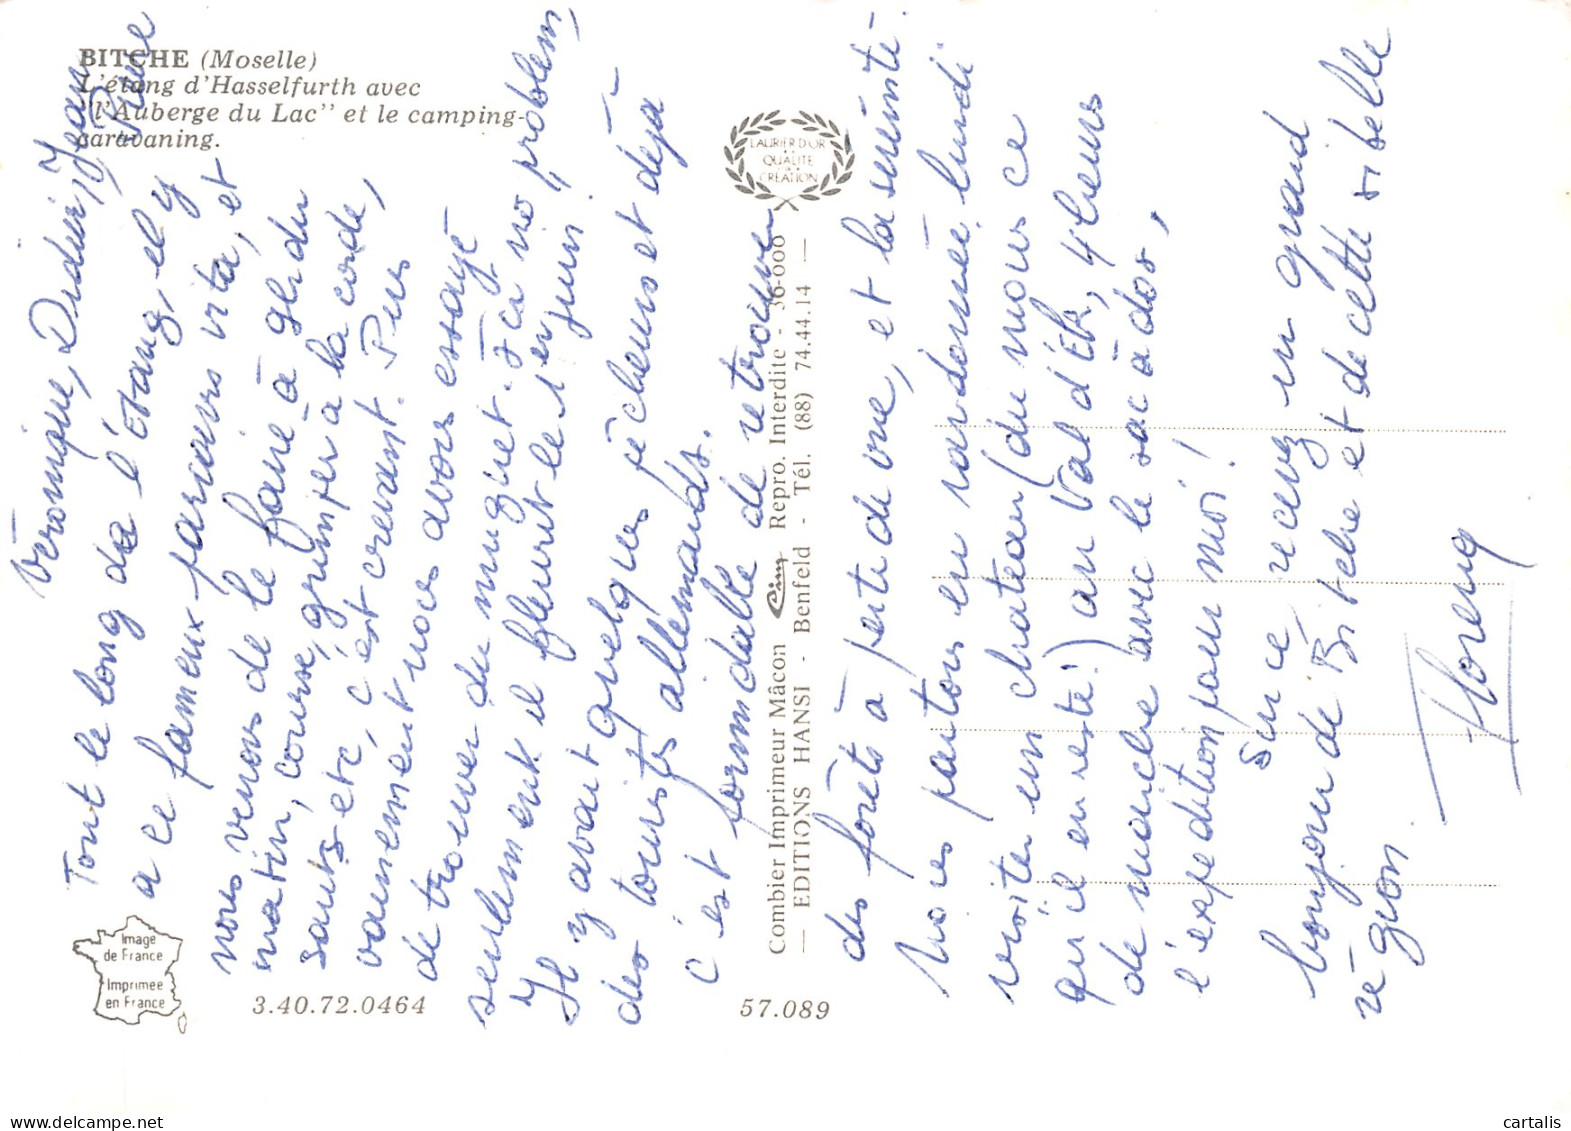 BITCHE (Moselle)
L'étang d'Hasselfurth avec
"l'Auberge du Lac" et le camping-
caravaning.
LAURIER D'OR
QUALITE
CREATION
Image
de France
Imprimée
en France
3.40.72.0464
57.089
Combier Imprimeur Mâcon Cim Repro. Interdite - 36-000
— EDITIONS HANSI - Benfeld - Tél. (88) 74.44.14 —
Véronique, Didier, Jean
Pierre
Tout le long de l'étang, il y
a ce fameux parcours vita, et
nous venons de le faire à 9h du
matin, course, grimper à la corde,
sauts etc, c'est crevant. Puis
vainement nous avons essayé
de trouver du muguet. Ici no problem,
seulement il fleurit le 1er juin!
Il y avait quelques pêcheurs et déjà
des touristes allemands.
c'est formidable de retrouver
des forêts à perte de vue, et la sérénité.
Nous partons en randonnée lundi
visiter un chateau (du mous ce
qu'il en reste!) au Val d'Eb, 4 heures
de marche avec le sac à dos,
l'expedition pour moi!
Sur ce recevez un grand
bonjour de Bitche et de cette si belle
région
Floreng
cartalis